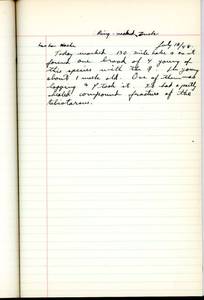 Ring-necked Duck
July 18/48.
Today marked 130 mile lake & as it
found one brood of 4 young of
this species with the ♀. The young
about 1 week old. One of them was
lagging & I took it. It had a partly
healed compound fracture of the
tibiotarsus.